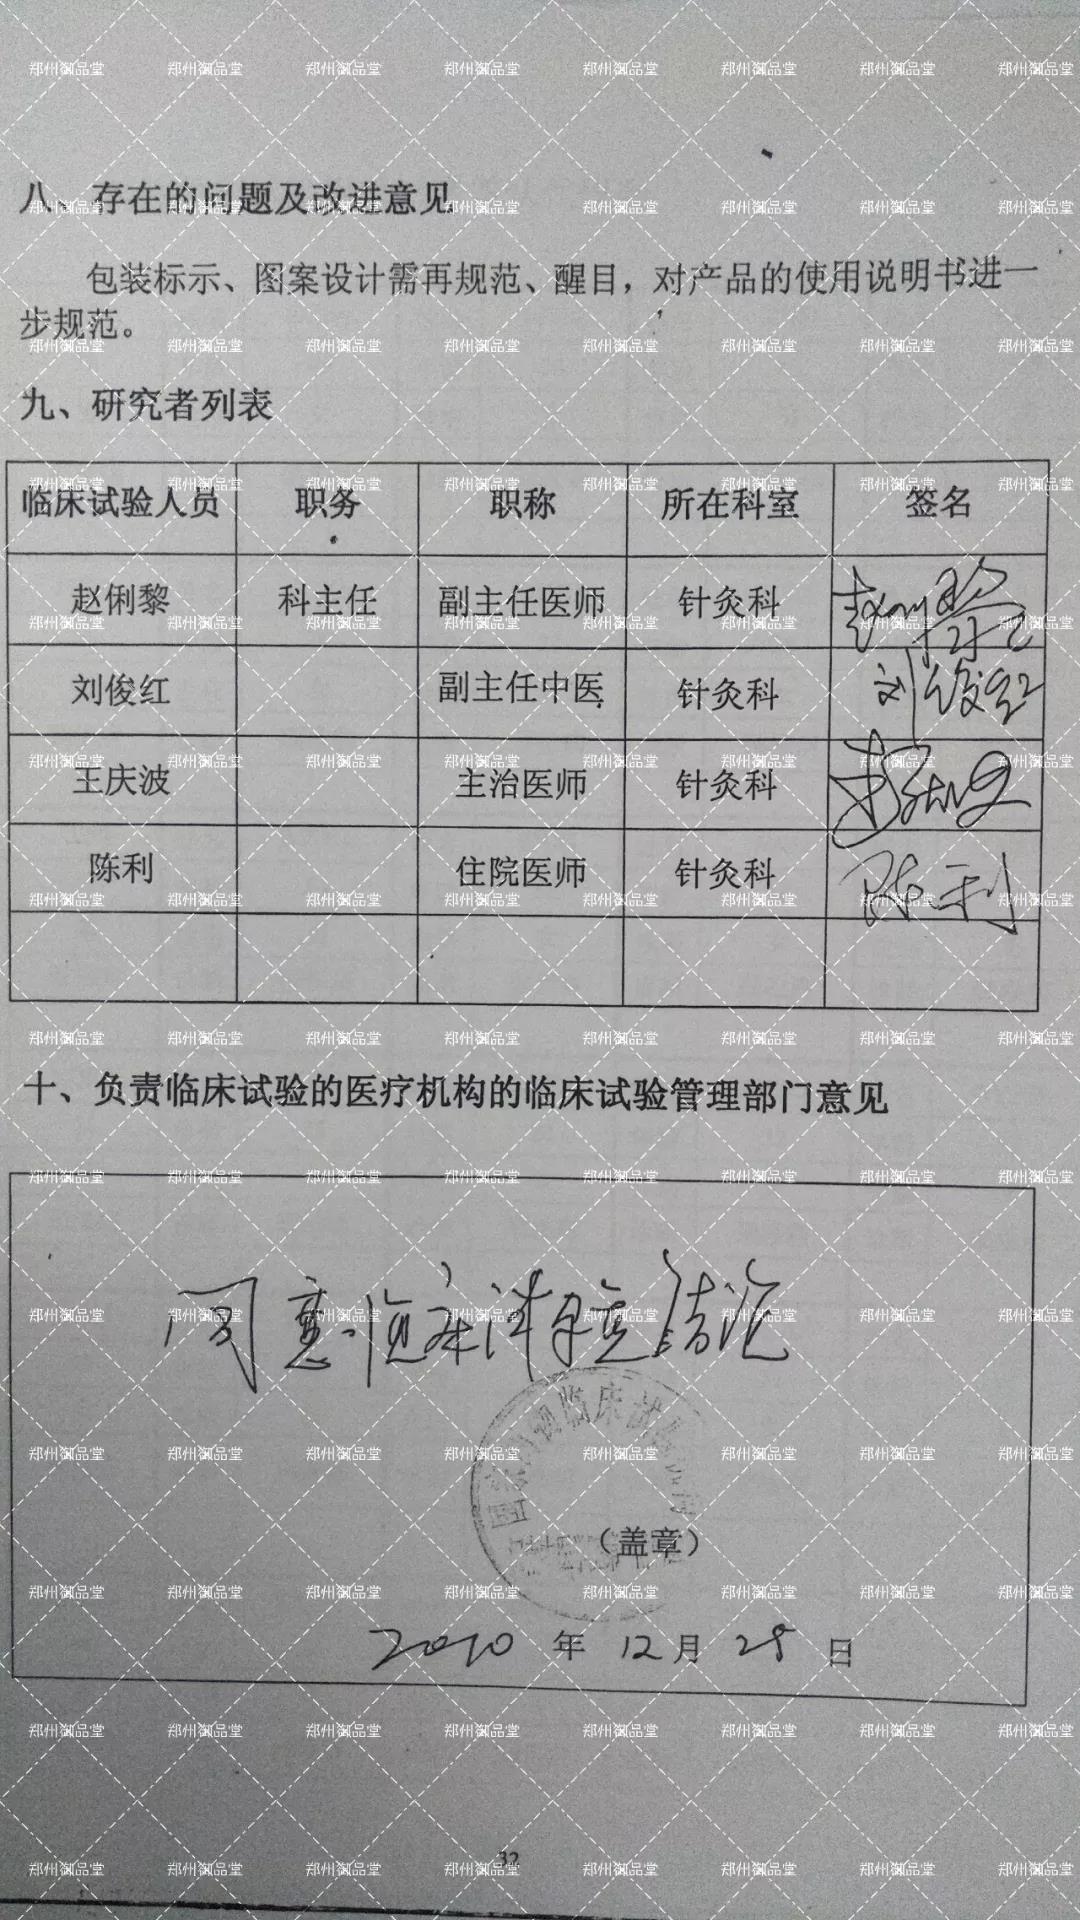 八、存在的问题及改进意见
包装标示、图案设计需再规范、醒目，对产品的使用说明书进一
步规范。
九、研究者列表
临床试验人员 职务 职称 所在科室 签名
赵俐黎 科主任 副主任医师 针灸科 赵俐黎
刘俊红 副主任中医 针灸科 刘俊红
王庆波 主治医师 针灸科
陈利 住院医师 针灸科 陈利
十、负责临床试验的医疗机构的临床试验管理部门意见
同意临床 结论
临床试
（盖章）
2010 年 12 月 日
32
郑州御品堂